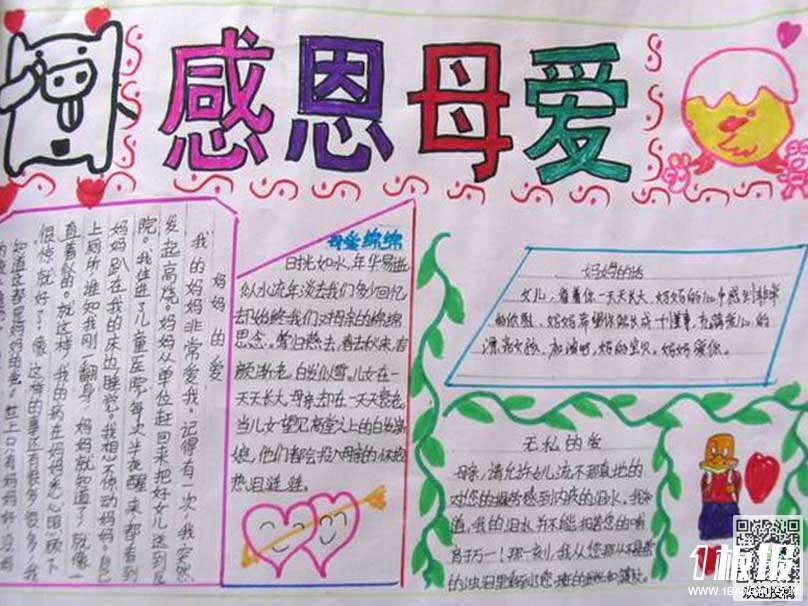 感恩母爱
妈妈的爱
我的妈妈非常爱我。记得有一次,我突然
发起高烧。妈妈从单位赶回来把好女儿送到医
院。我住进了儿童医院,每次半夜醒来都看到
妈妈趴在我的床边睡觉。我想不惊动妈妈。自己
上厕所,谁知我刚一翻身,妈妈就知道了,就像一
直看似的。就这样,我的病在妈妈悉心照顾下
很快就好了。像这样的事还有很多很多,我
知道这都是妈妈的爱。世上只有妈妈好,没有
母爱绵绵
时光如水,年华易逝
似水流年淡去我们多少回忆
却始终我们对母亲的绵绵
思念。莺归燕去,春去秋来,容
颜渐老,白发似雪。儿女在一
天天长大,母亲却在一天天衰老
当儿女望见高堂之上的白发亲
娘,他们都会投入母亲的怀抱
热泪涟涟。
妈妈的话
女儿,看着你一天天长大,妈妈的心中感到非常
的欣慰,妈妈希望你能成为懂事,充满爱心的
漂亮女孩,加油吧,妈的宝贝。妈妈爱你。
无私的爱
母亲,请允许女儿流不那真地的
对您的
感到内疚的泪水,我知
道,我的泪水并不能报答您的哺
育于万一!那一刻,我从您那从不轻
的浊泪里
1板报
WWW.1BANBAO.COM
欢迎投稿